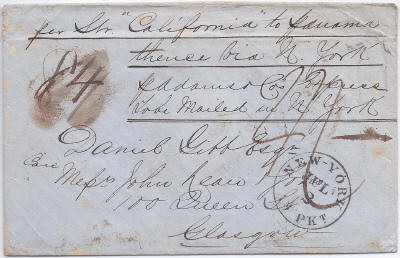 per Str. "California" to Panama
thence via N. York
p Addams & Co's Express
to be Mailed in N. York
Daniel Gibb Esqr
Care Messrs John
100 Queen St
Glasgow
NEW-YORK
JUL
PKT